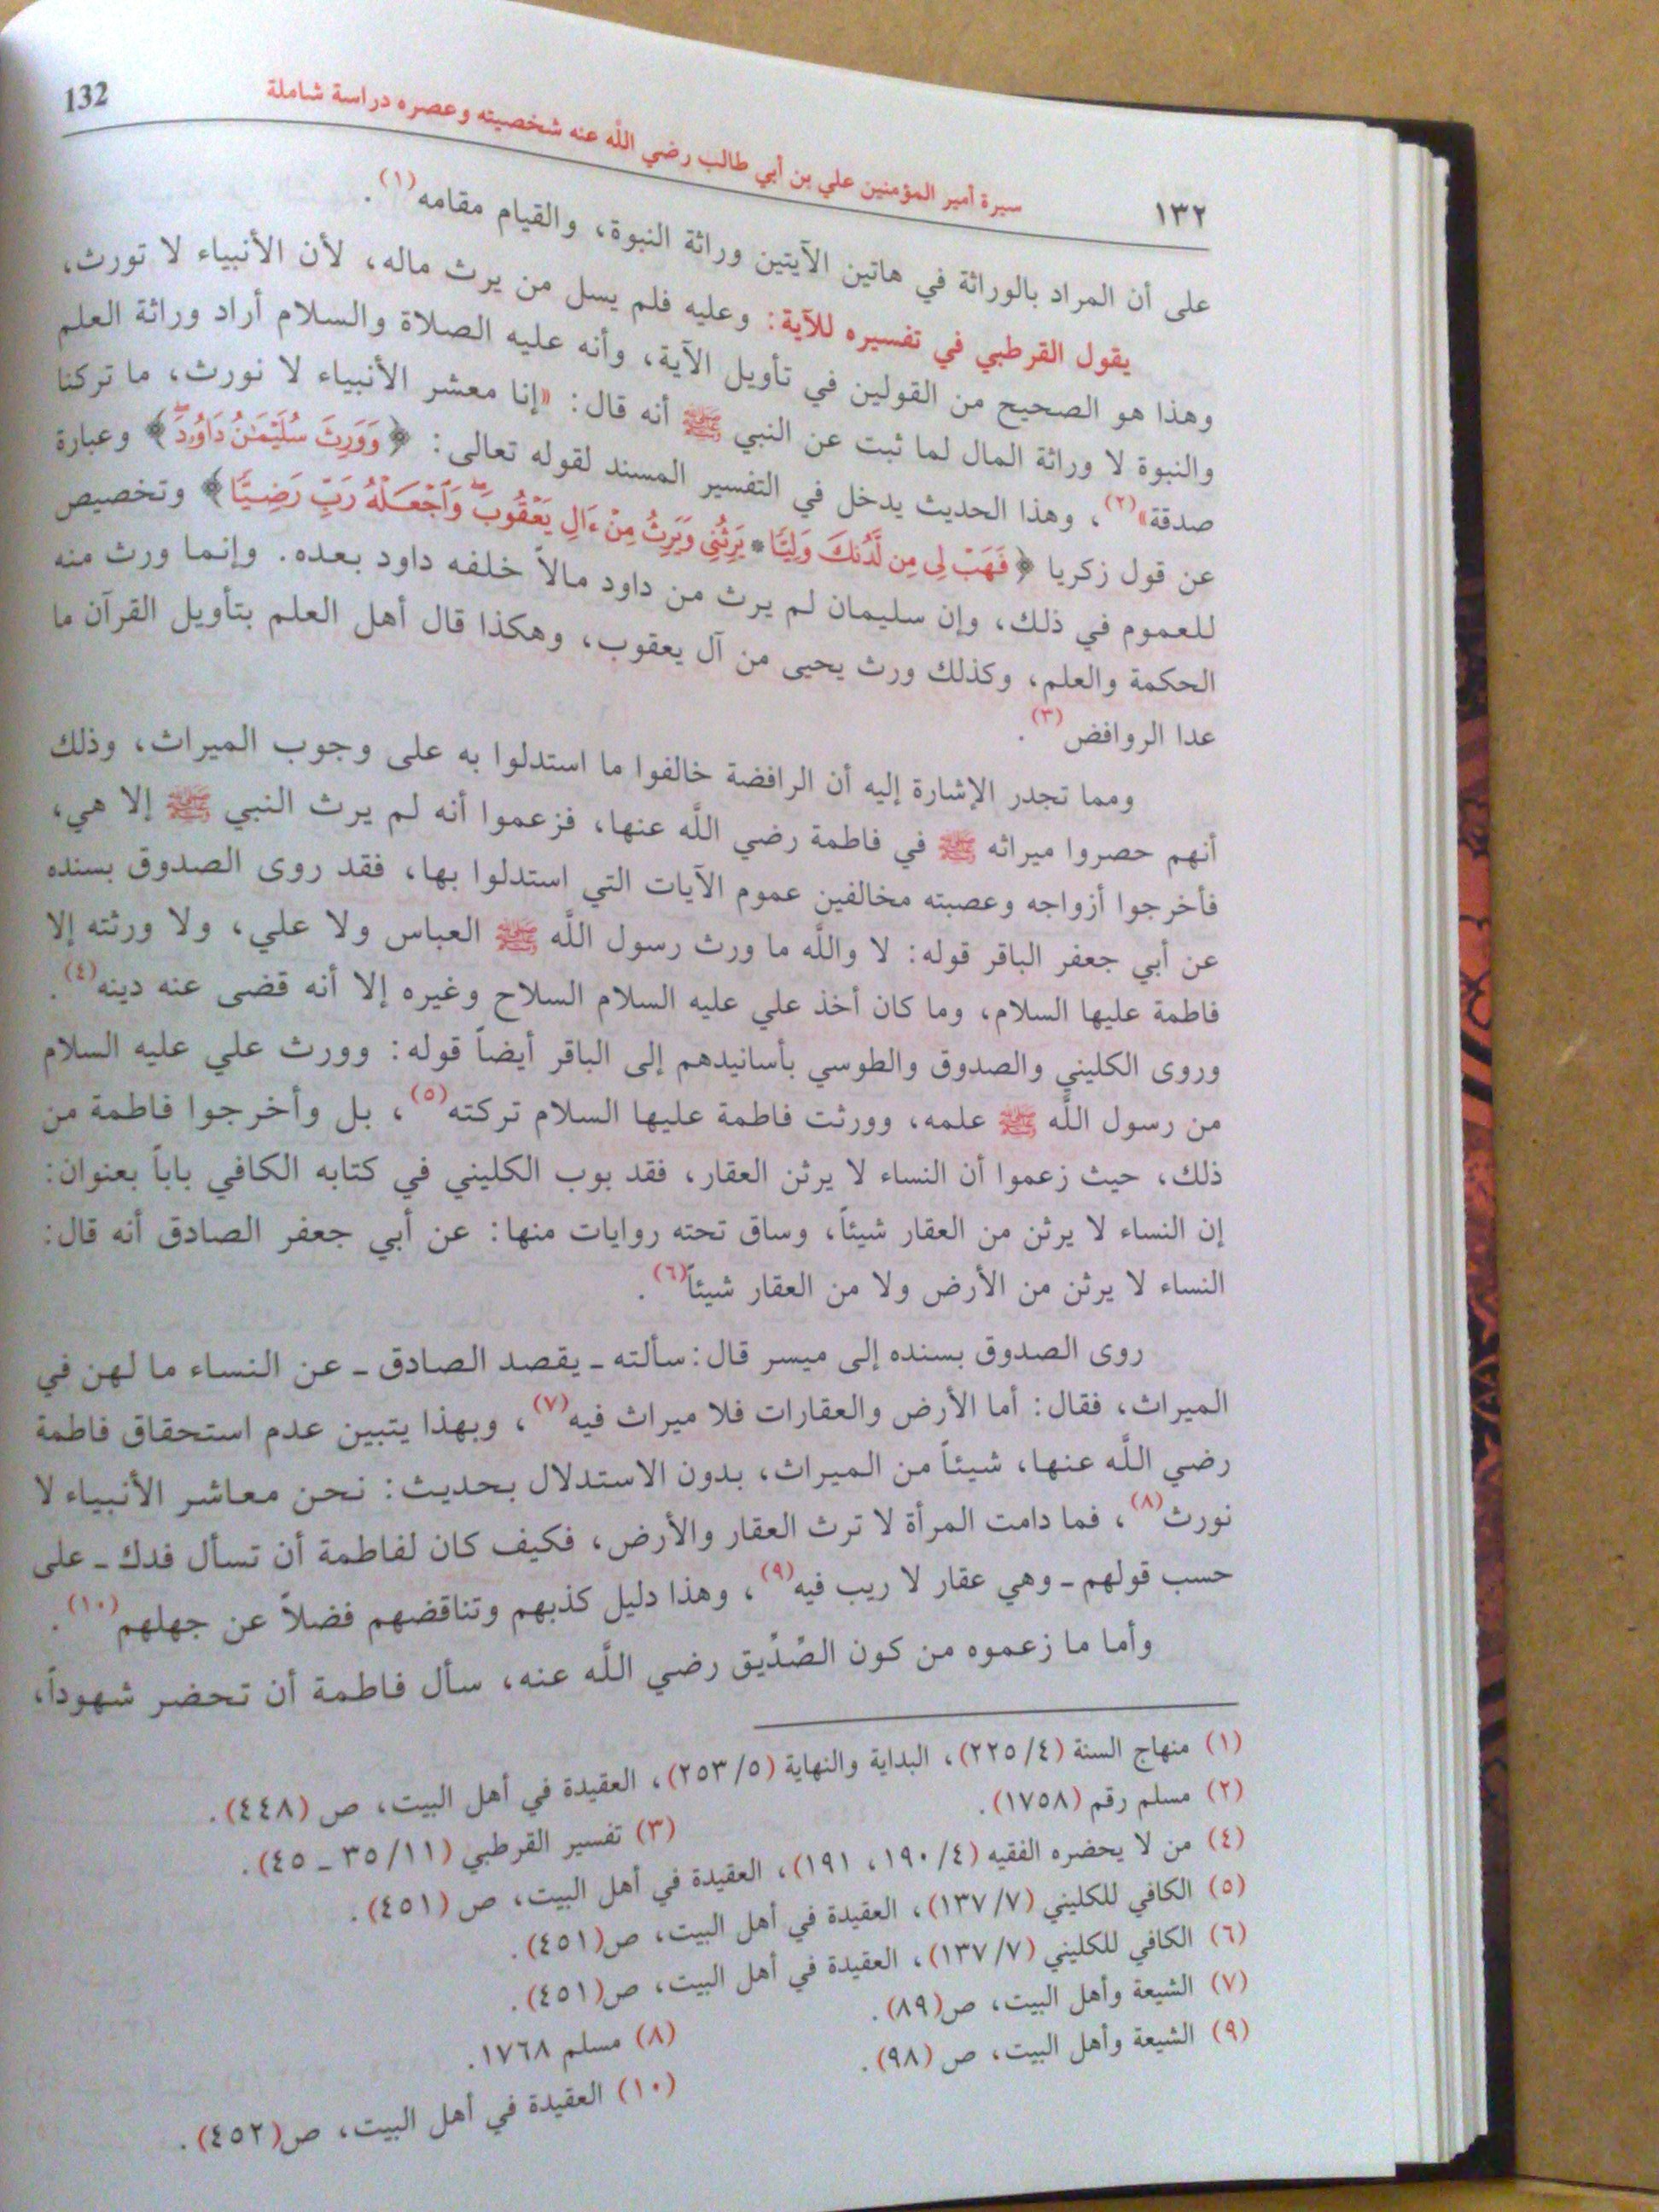 132
سيرة أمير المؤمنين علي بن أبي طالب رضي اللَّه عنه شخصيته وعصره دراسة شاملة
١٣٢
على أن المراد بالوراثة في هاتين الآيتين وراثة النبوة، والقيام مقامه(١).
يقول القرطبي في تفسيره للآية: وعليه فلم يسل من يرث ماله، لأن الأنبياء لا تورث،
وهذا هو الصحيح من القولين في تأويل الآية، وأنه عليه الصلاة والسلام أراد وراثة العلم
والنبوة لا وراثة المال لما ثبت عن النبي ﷺ أنه قال: «إنا معشر الأنبياء لا نورث، ما تركنا
صدقة»(٢)، وهذا الحديث يدخل في التفسير المسند لقوله تعالى: ﴿وَوَرِثَ سُلَيْمَٰنُ دَاوُۥدَۖ﴾ وعبارة
عن قول زكريا ﴿فَهَبْ لِى مِن لَّدُنكَ وَلِيًّا * يَرِثُنِى وَيَرِثُ مِنْ ءَالِ يَعْقُوبَۖ وَٱجْعَلْهُ رَبِّ رَضِيًّا﴾ وتخصيص
للعموم في ذلك، وإن سليمان لم يرث من داود مالاً خلفه داود بعده. وإنما ورث منه
الحكمة والعلم، وكذلك ورث يحيى من آل يعقوب، وهكذا قال أهل العلم بتأويل القرآن ما
عدا الروافض(٣).
ومما تجدر الإشارة إليه أن الرافضة خالفوا ما استدلوا به على وجوب الميراث، وذلك
أنهم حصروا ميراثه ﷺ في فاطمة رضي اللَّه عنها، فزعموا أنه لم يرث النبي ﷺ إلا هي،
فأخرجوا أزواجه وعصبته مخالفين عموم الآيات التي استدلوا بها، فقد روى الصدوق بسنده
عن أبي جعفر الباقر قوله: لا واللَّه ما ورث رسول اللَّه ﷺ العباس ولا علي، ولا ورثته إلا
فاطمة عليها السلام، وما كان أخذ علي عليه السلام السلاح وغيره إلا أنه قضى عنه دينه(٤).
وروى الكليني والصدوق والطوسي بأسانيدهم إلى الباقر أيضاً قوله: وورث علي عليه السلام
من رسول اللَّه ﷺ علمه، وورثت فاطمة عليها السلام تركته(٥)، بل وأخرجوا فاطمة من
ذلك، حيث زعموا أن النساء لا يرثن العقار، فقد بوب الكليني في كتابه الكافي باباً بعنوان:
إن النساء لا يرثن من العقار شيئاً، وساق تحته روايات منها: عن أبي جعفر الصادق أنه قال:
النساء لا يرثن من الأرض ولا من العقار شيئاً(٦).
روى الصدوق بسنده إلى ميسر قال: سألته ـ يقصد الصادق ـ عن النساء ما لهن في
الميراث، فقال: أما الأرض والعقارات فلا ميراث فيه(٧)، وبهذا يتبين عدم استحقاق فاطمة
رضي اللَّه عنها، شيئاً من الميراث، بدون الاستدلال بحديث: نحن معاشر الأنبياء لا
نورث(٨)، فما دامت المرأة لا ترث العقار والأرض، فكيف كان لفاطمة أن تسأل فدك ـ على
حسب قولهم ـ وهي عقار لا ريب فيه(٩)، وهذا دليل كذبهم وتناقضهم فضلاً عن جهلهم(١٠).
وأما ما زعموه من كون الصِّدِّيق رضي اللَّه عنه، سأل فاطمة أن تحضر شهوداً،
(١) منهاج السنة (٤/ ٢٢٥)، البداية والنهاية (٥/ ٢٥٣)، العقيدة في أهل البيت، ص (٤٤٨).
(٢) مسلم رقم (١٧٥٨).
(٣) تفسير القرطبي (١١/ ٣٥ ـ ٤٥).
(٤) من لا يحضره الفقيه (٤/ ١٩٠، ١٩١)، العقيدة في أهل البيت، ص (٤٥١).
(٥) الكافي للكليني (٧/ ١٣٧)، العقيدة في أهل البيت، ص(٤٥١).
(٦) الكافي للكليني (٧/ ١٣٧)، العقيدة في أهل البيت، ص(٤٥١).
(٧) الشيعة وأهل البيت، ص(٨٩).
(٨) مسلم ١٧٦٨.
(٩) الشيعة وأهل البيت، ص (٩٨).
(١٠) العقيدة في أهل البيت، ص(٤٥٢).